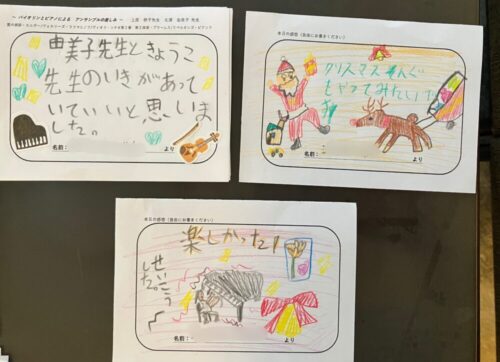 ～ バイオリンとピアノによる アンサンブルの楽しみ ～
由美子先生ときょうこ
先生のいきがあって
いていいと思いま
した。
名前：
より
本日の感想（自由にお書きください）
クリスマスそんぐ
もやってみたいで
す
名前：
より
本日の感想（自由にお書きください）
楽しかった！
せいこう
した。
名前：
より